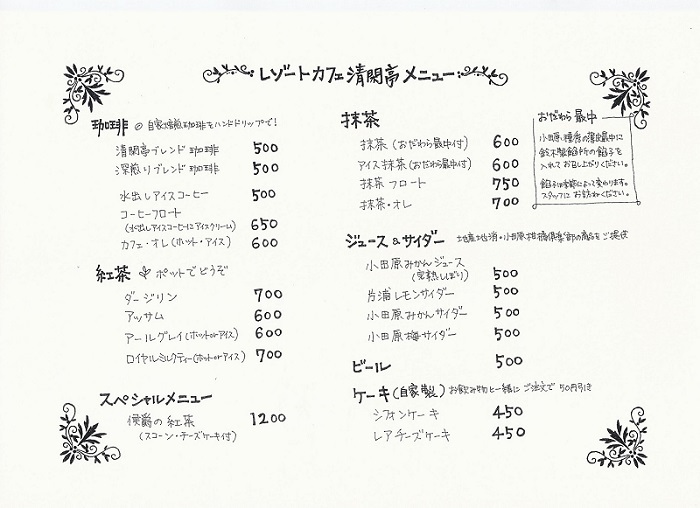 レゾートカフェ清閑亭メニュー
珈琲 自家焙煎珈琲をハンドドリップで!
清閑亭ブレンド珈琲 500
深煎りブレンド珈琲 500
水出しアイスコーヒー 500
コーヒーフロート
(水出しアイスコーヒーにアイスクリーム) 650
カフェ・オレ(ホット・アイス) 600
紅茶 ポットでどうぞ
ダージリン 700
アッサム 600
アールグレイ(ホットorアイス) 600
ロイヤルミルクティー(ホットorアイス) 700
スペシャルメニュー
侯爵の紅茶 1200
(スコーン・チーズケーキ付)
抹茶
抹茶(おだわら最中付) 600
アイス抹茶(おだわら最中付) 600
抹茶フロート 750
抹茶・オレ 700
おだわら最中
小田原・種秀の薄皮最中に
鈴木製餡所の餡子を
入れてお召し上がりください。
餡子は季節によって変わります。
スタッフにお訊ねください。
ジュース&サイダー 地産地消・小田原柑橘倶楽部の商品をご提供
小田原みかんジュース
(完熟しぼり) 500
片浦レモンサイダー 500
小田原みかんサイダー 500
小田原梅サイダー 500
ビール 500
ケーキ(自家製) お飲み物と一緒にご注文で50円引き
シフォンケーキ 450
レアチーズケーキ 450